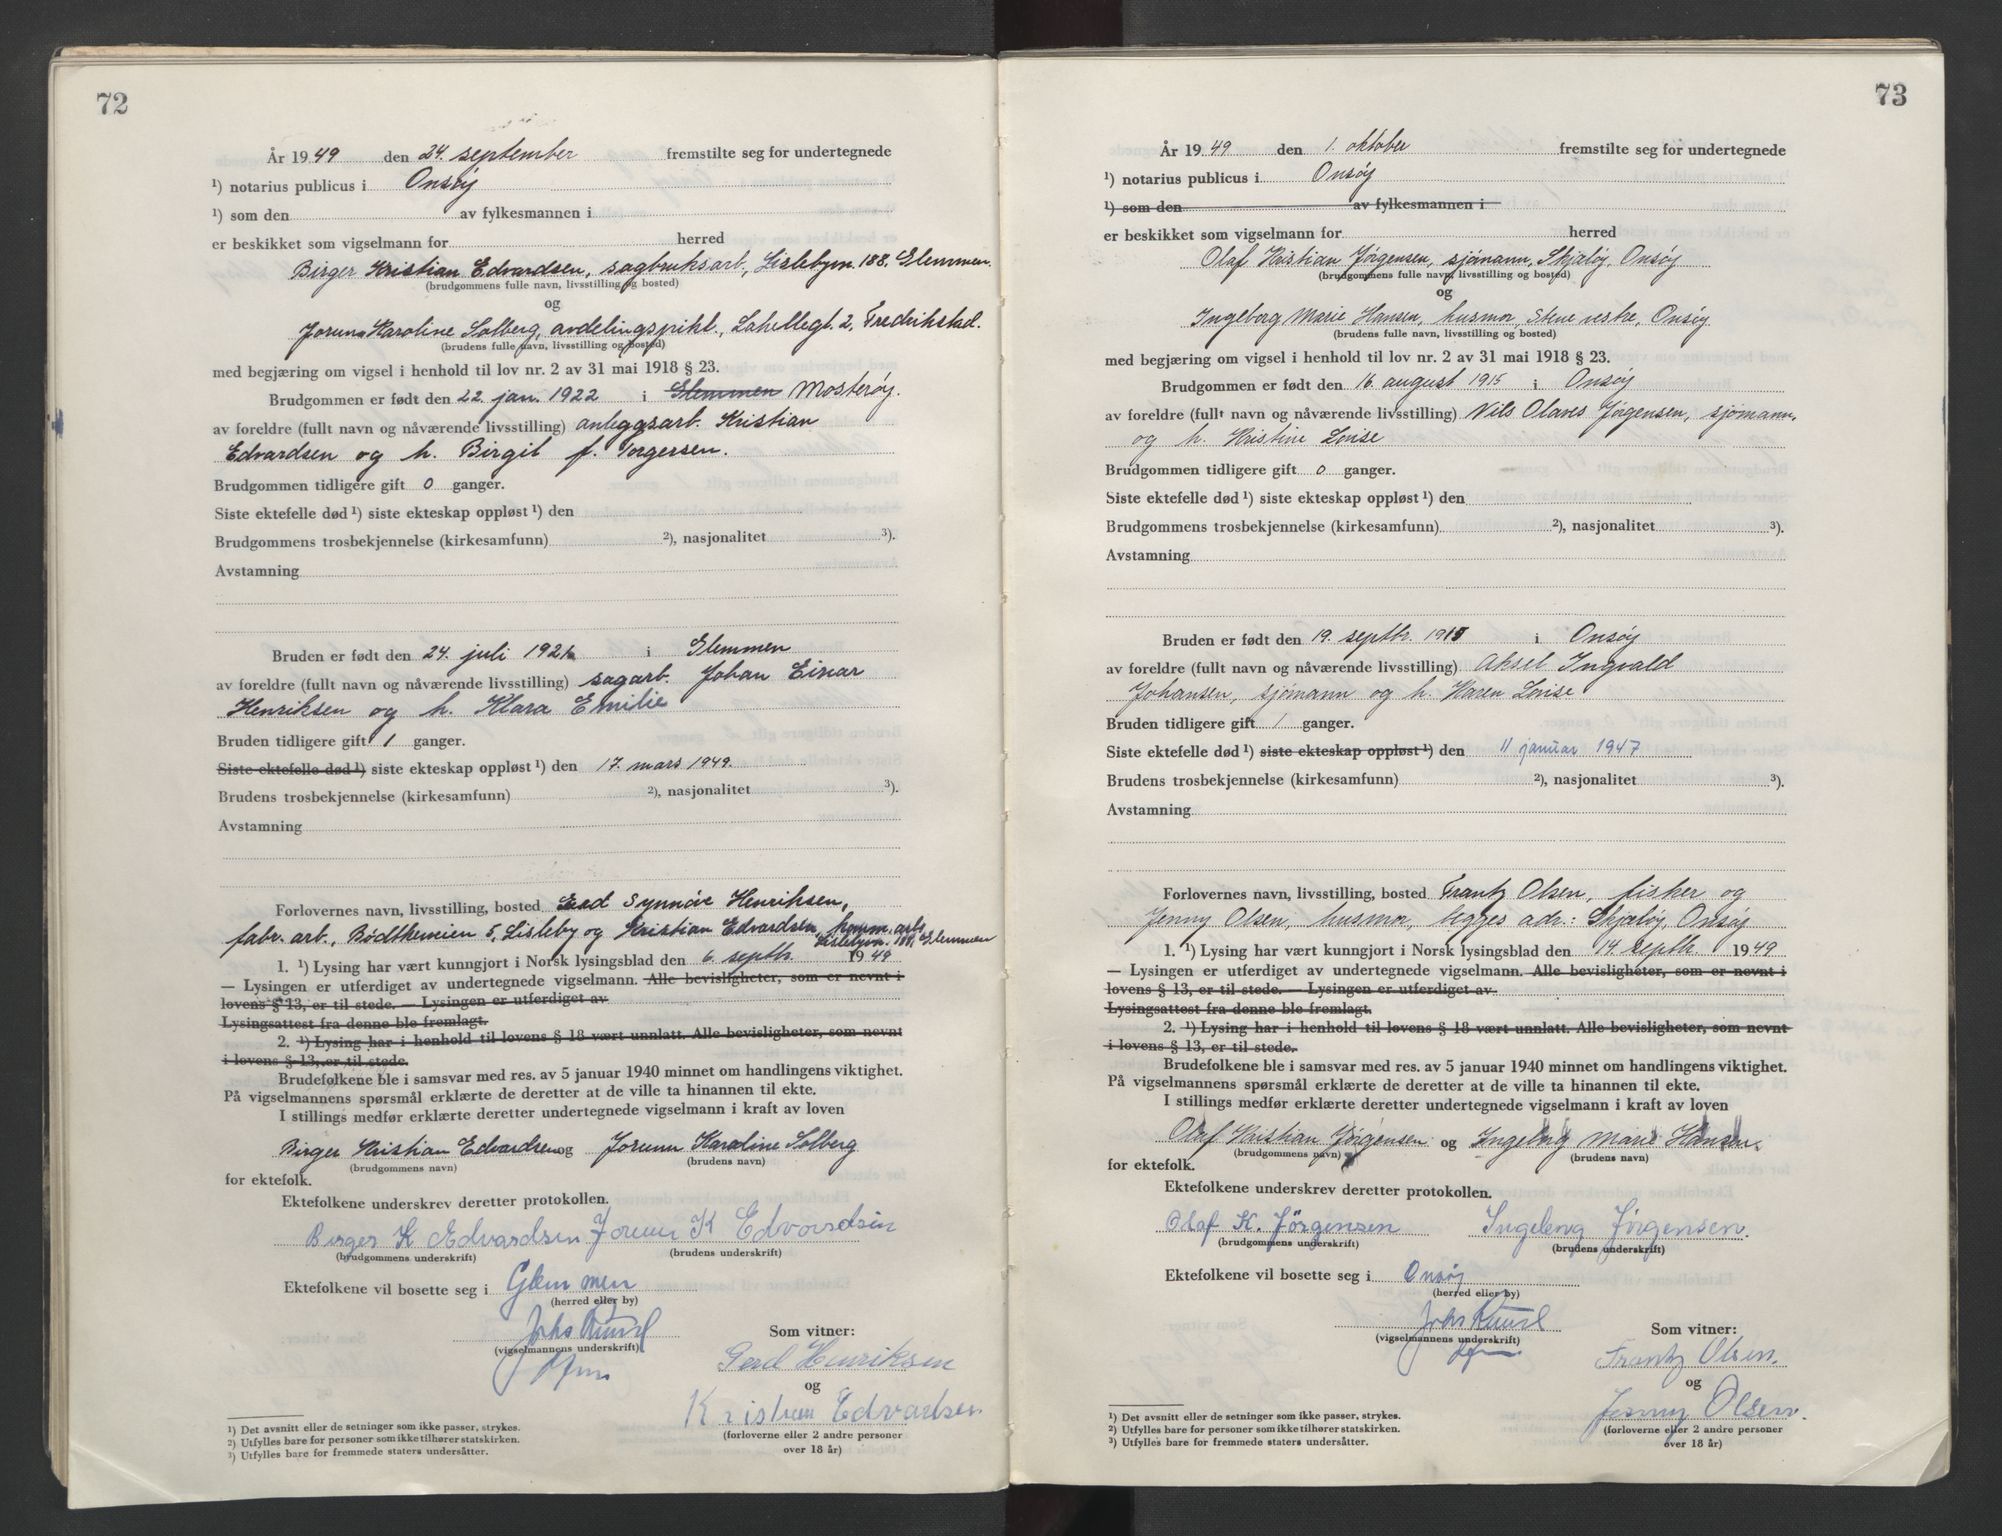 72
År 1949 den 24. september fremstilte seg for undertegnede
¹) notarius publicus i Onsøy
¹) som den av fylkesmannen i
er beskikket som vigselmann for herred
Birger Kristian Edvardsen, sagbruksarb, Lislebyvn. 188, Glemmen.
(brudgommens fulle navn, livsstilling og bosted)
og
Jorunn Karoline Solberg, avdelingspikt., Lahellegt. 2, Fredrikstad.
(brudens fulle navn, livsstilling og bosted)
med begjæring om vigsel i henhold til lov nr. 2 av 31 mai 1918 § 23.
Brudgommen er født den 22. jan. 1922 i Glemmen Mosterøy.
av foreldre (fullt navn og nåværende livsstilling) anleggsarb. Kristian
Edvardsen og h. Birgit f. Torgersen.
Brudgommen tidligere gift 0 ganger.
Siste ektefelle død ¹) siste ekteskap oppløst ¹) den
Brudgommens trosbekjennelse (kirkesamfunn) ²), nasjonalitet ³).
Avstamning
Bruden er født den 24. juli 1921 i Glemmen
av foreldre (fullt navn og nåværende livsstilling) sagarb. Johan Einar
Henriksen og h. Klara Emilie
Bruden tidligere gift 1 ganger.
Siste ektefelle død ¹) siste ekteskap oppløst ¹) den 17. mars 1949.
Brudens trosbekjennelse (kirkesamfunn) ²), nasjonalitet ³).
Avstamning
Forlovernes navn, livsstilling, bosted Gerd Synnøve Henriksen,
fabr. arb., Bødtkerveien 5, Lisleby og Kristian Edvardsen, komm. arb.
Lislebyvn. 188, Glemmen
1. ¹) Lysing har vært kunngjort i Norsk lysingsblad den 6. septbr. 1949
— Lysingen er utferdiget av undertegnede vigselmann. Alle bevisligheter, som er nevnt i
lovens § 13, er til stede. — Lysingen er utferdiget av
Lysingsattest fra denne ble fremlagt.
2. ¹) Lysing har i henhold til lovens § 18 vært unnlatt. Alle bevisligheter, som nevnt
i lovens § 13, er til stede.
Brudefolkene ble i samsvar med res. av 5 januar 1940 minnet om handlingens viktighet.
På vigselmannens spørsmål erklærte de deretter at de ville ta hinannen til ekte.
I stillings medfør erklærte deretter undertegnede vigselmann i kraft av loven
Birger Kristian Edvardsen og Jorunn Karoline Solberg
(brudgommens navn) (brudens navn)
for ektefolk.
Ektefolkene underskrev deretter protokollen.
Birger K Edvardsen Jorunn K Edvardsen
(brudgommens underskrift) (brudens underskrift)
Ektefolkene vil bosette seg i Glemmen
(herred eller by)
Som vitner:
(vigselmannens underskrift)
Gerd Henriksen
og
Kristian Edvardsen.
(forloverne eller 2 andre personer
over 18 år)
¹) Det avsnitt eller de setninger som ikke passer, strykes.
²) Utfylles bare for personer som ikke tilhører statskirken.
³) Utfylles bare for fremmede staters undersåtter.
73
År 1949 den 1. oktober fremstilte seg for undertegnede
¹) notarius publicus i Onsøy
¹) som den av fylkesmannen i
er beskikket som vigselmann for herred
Olaf Kristian Jørgensen, sjømann, Skjæløy, Onsøy
(brudgommens fulle navn, livsstilling og bosted)
og
Ingeborg Marie Hansen, husmor, Stene vestre, Onsøy
(brudens fulle navn, livsstilling og bosted)
med begjæring om vigsel i henhold til lov nr. 2 av 31 mai 1918 § 23.
Brudgommen er født den 16. august 1915 i Onsøy
av foreldre (fullt navn og nåværende livsstilling) Nils Olaves Jørgensen, sjømann,
og h. Kristine Lovise
Brudgommen tidligere gift 0 ganger.
Siste ektefelle død ¹) siste ekteskap oppløst ¹) den
Brudgommens trosbekjennelse (kirkesamfunn) ²), nasjonalitet ³).
Avstamning
Bruden er født den 19. septbr. 1915 i Onsøy
av foreldre (fullt navn og nåværende livsstilling) Aksel Ingvald
Johansen, sjømann og h. Karen Lovise
Bruden tidligere gift 1 ganger.
Siste ektefelle død ¹) siste ekteskap oppløst ¹) den 11 januar 1947
Brudens trosbekjennelse (kirkesamfunn) ²), nasjonalitet ³).
Avstamning
Forlovernes navn, livsstilling, bosted Frantz Olsen, fisker og
Jenny Olsen, husmor, begges adr.: Skjæløy, Onsøy
1. ¹) Lysing har vært kunngjort i Norsk lysingsblad den 14. septbr. 1949
— Lysingen er utferdiget av undertegnede vigselmann. Alle bevisligheter, som er nevnt i
lovens § 13, er til stede. — Lysingen er utferdiget av
Lysingsattest fra denne ble fremlagt.
2. ¹) Lysing har i henhold til lovens § 18 vært unnlatt. Alle bevisligheter, som nevnt
i lovens § 13, er til stede.
Brudefolkene ble i samsvar med res. av 5 januar 1940 minnet om handlingens viktighet.
På vigselmannens spørsmål erklærte de deretter at de ville ta hinannen til ekte.
I stillings medfør erklærte deretter undertegnede vigselmann i kraft av loven
Olaf Kristian Jørgensen og Ingeborg Marie Hansen.
(brudgommens navn) (brudens navn)
for ektefolk.
Ektefolkene underskrev deretter protokollen.
Olaf K. Jörgensen Ingeborg Jørgensen.
(brudgommens underskrift) (brudens underskrift)
Ektefolkene vil bosette seg i Onsøy
(herred eller by)
Som vitner:
(vigselmannens underskrift)
Frantz Olsen.
og
Jenny Olsen.
(forloverne eller 2 andre personer
over 18 år)
¹) Det avsnitt eller de setninger som ikke passer, strykes.
²) Utfylles bare for personer som ikke tilhører statskirken.
³) Utfylles bare for fremmede staters undersåtter.